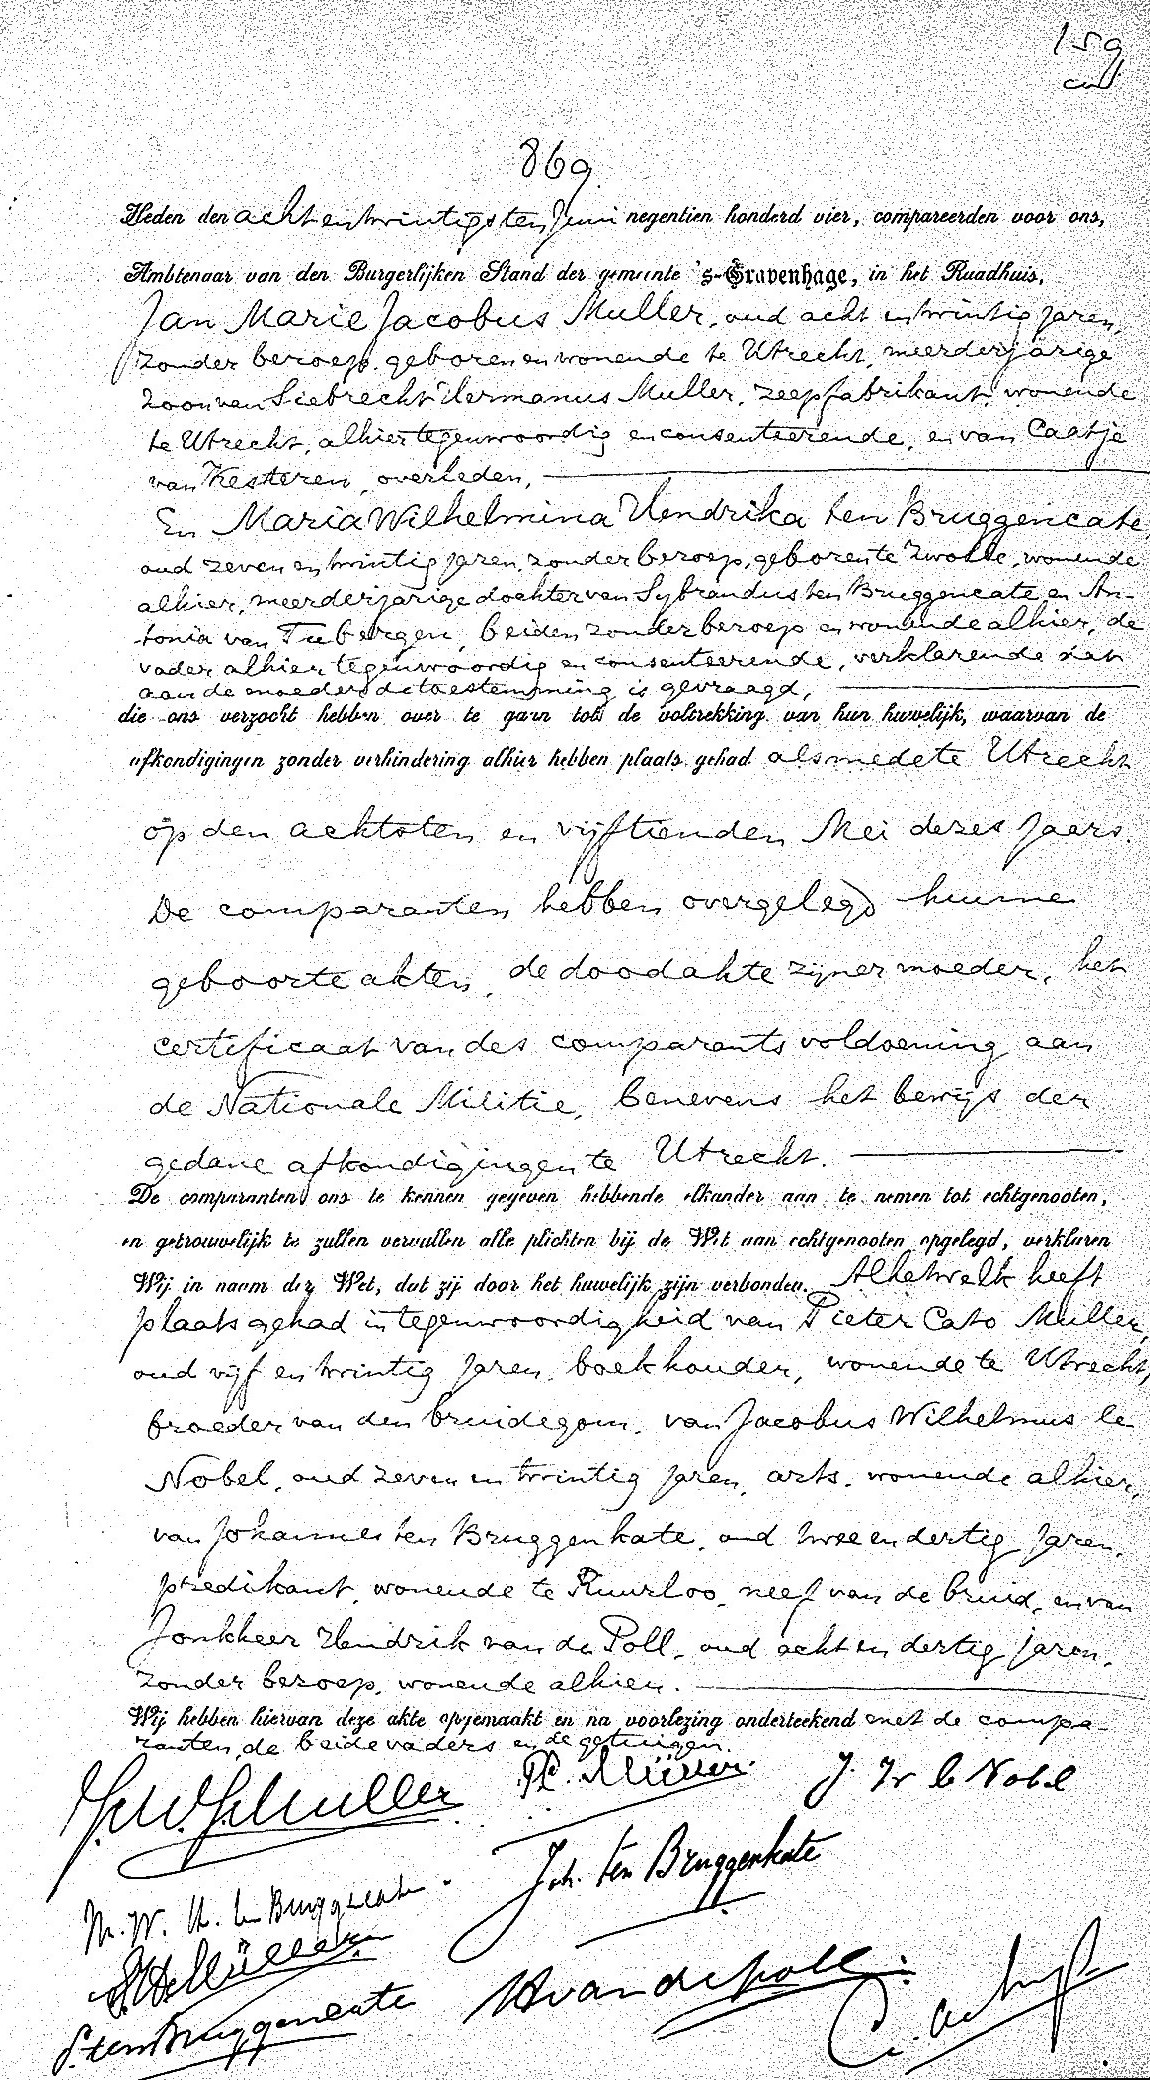 159
869.
Heden den achtentwintigsten Juni negentien honderd vier, compareerden voor ons,
Ambtenaar van den Burgerlijken Stand der gemeente 's-Gravenhage, in het Raadhuis,
Jan Marie Jacobus Muller, oud acht en twintig jaren,
zonder beroep, geboren en wonende te Utrecht, meerderjarige
zoon van Siebrecht Hermanus Muller, zeepfabrikant, wonende
te Utrecht, alhier tegenwoordig en consenteerende, en van Caatje
van Kesteren, overleden,
En Maria Wilhelmina Hendrika ten Bruggencate,
oud zeven en twintig jaren, zonder beroep, geboren te Zwolle, wonende
alhier, meerderjarige dochter van Sybrandus ten Bruggencate en An-
tonia van Tubergen, beiden zonder beroep en wonende alhier, de
vader alhier tegenwoordig en consenteerende, verklarende dat
aan de moeder de toestemming is gevraagd,
die ons verzocht hebben over te gaan tot de voltrekking van hun huwelijk, waarvan de
afkondigingen zonder verhindering alhier hebben plaats gehad alsmede te Utrecht
op den achtsten en vijftienden Mei dezes jaars.
De comparanten hebben overgelegd hunne
geboorteakten, de doodakte zijner moeder, het
certificaat van des comparants voldoening aan
de Nationale Militie, benevens het bewijs der
gedane afkondigingen te Utrecht.
De comparanten ons te kennen gegeven hebbende elkander aan te nemen tot echtgenooten,
en getrouwelijk te zullen vervullen alle plichten bij de Wet aan echtgenooten opgelegd, verklaren
Wij in naam der Wet, dat zij door het huwelijk zijn verbonden. Al hetwelk heeft
plaats gehad in tegenwoordigheid van Pieter Cato Muller,
oud vijf en twintig jaren, boekhouder, wonende te Utrecht,
broeder van den bruidegom, van Jacobus Wilhelmus le
Nobel, oud zeven en twintig jaren, arts, wonende alhier,
van Johannes ten Bruggenkate, oud twee en dertig jaren,
predikant, wonende te Ruurloo, neef van de bruid, en van
Jonkheer Hendrik van de Poll, oud acht en dertig jaren,
zonder beroep, wonende alhier.
Wij hebben hiervan deze akte opgemaakt en na voorlezing onderteekend met de compa-
ranten, de beide vaders en de getuigen.
P.C. Müller. J. W le Nobel
Joh. ten Bruggenkate
M. W. H. ten Bruggencate.
SHMüller
H van de Poll.
S. ten Bruggencate